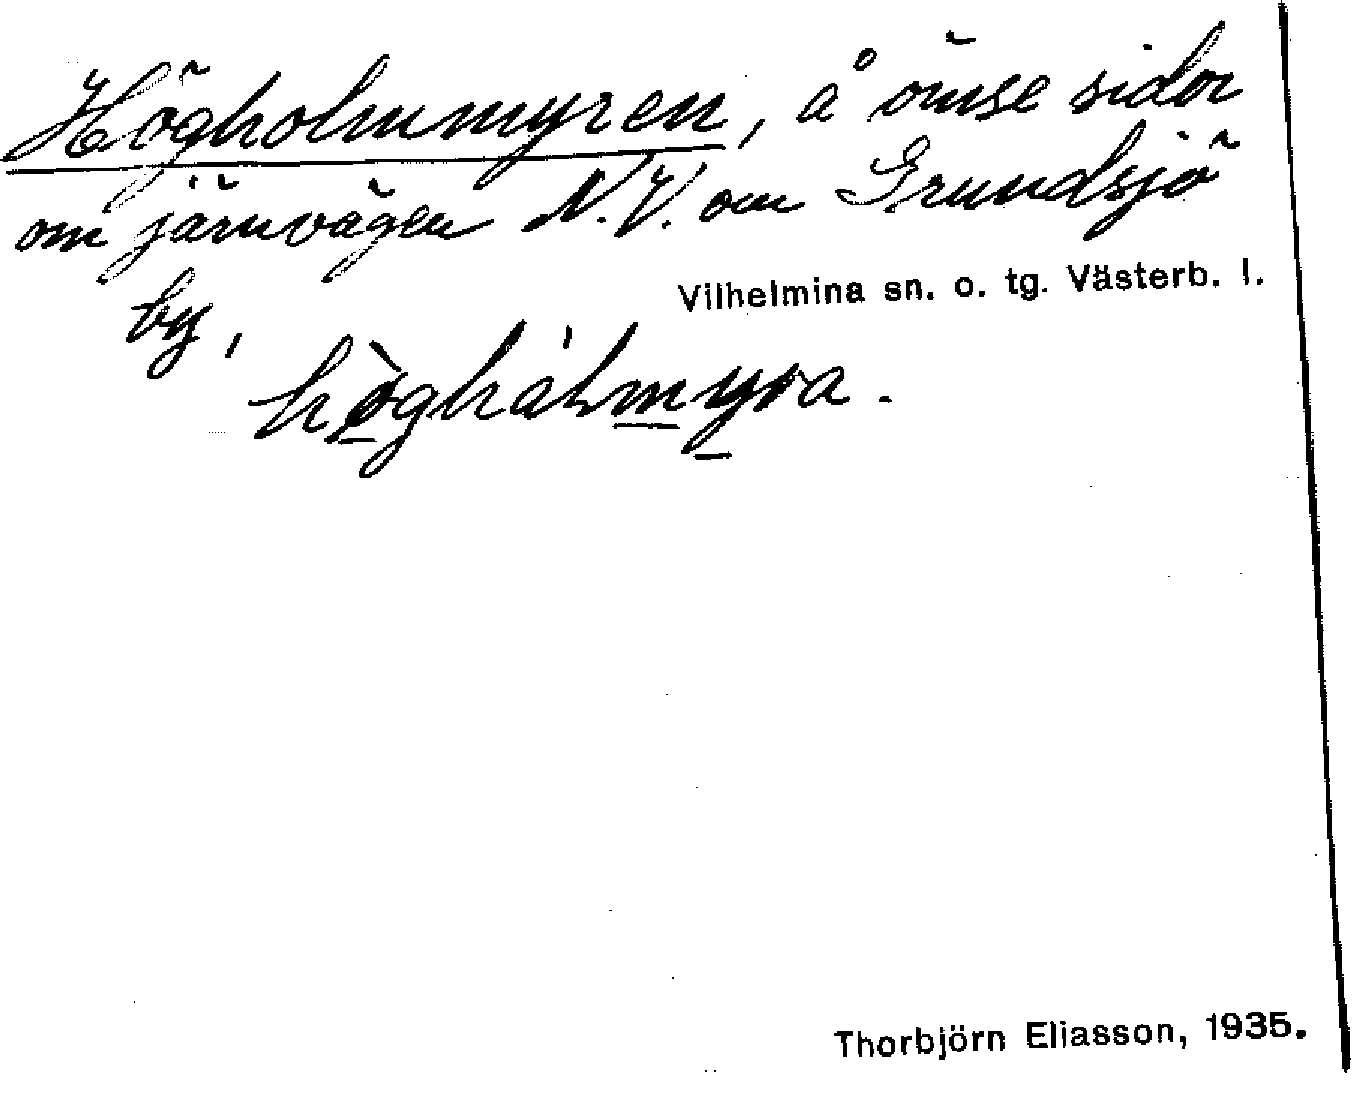 Högholmmyren, å ömse sidor
om järnvägen N.V. om Grundsjö
by,
Vilhelmina sn. o. tg. Västerb. l.
Thorbjörn Eliasson, 1935.